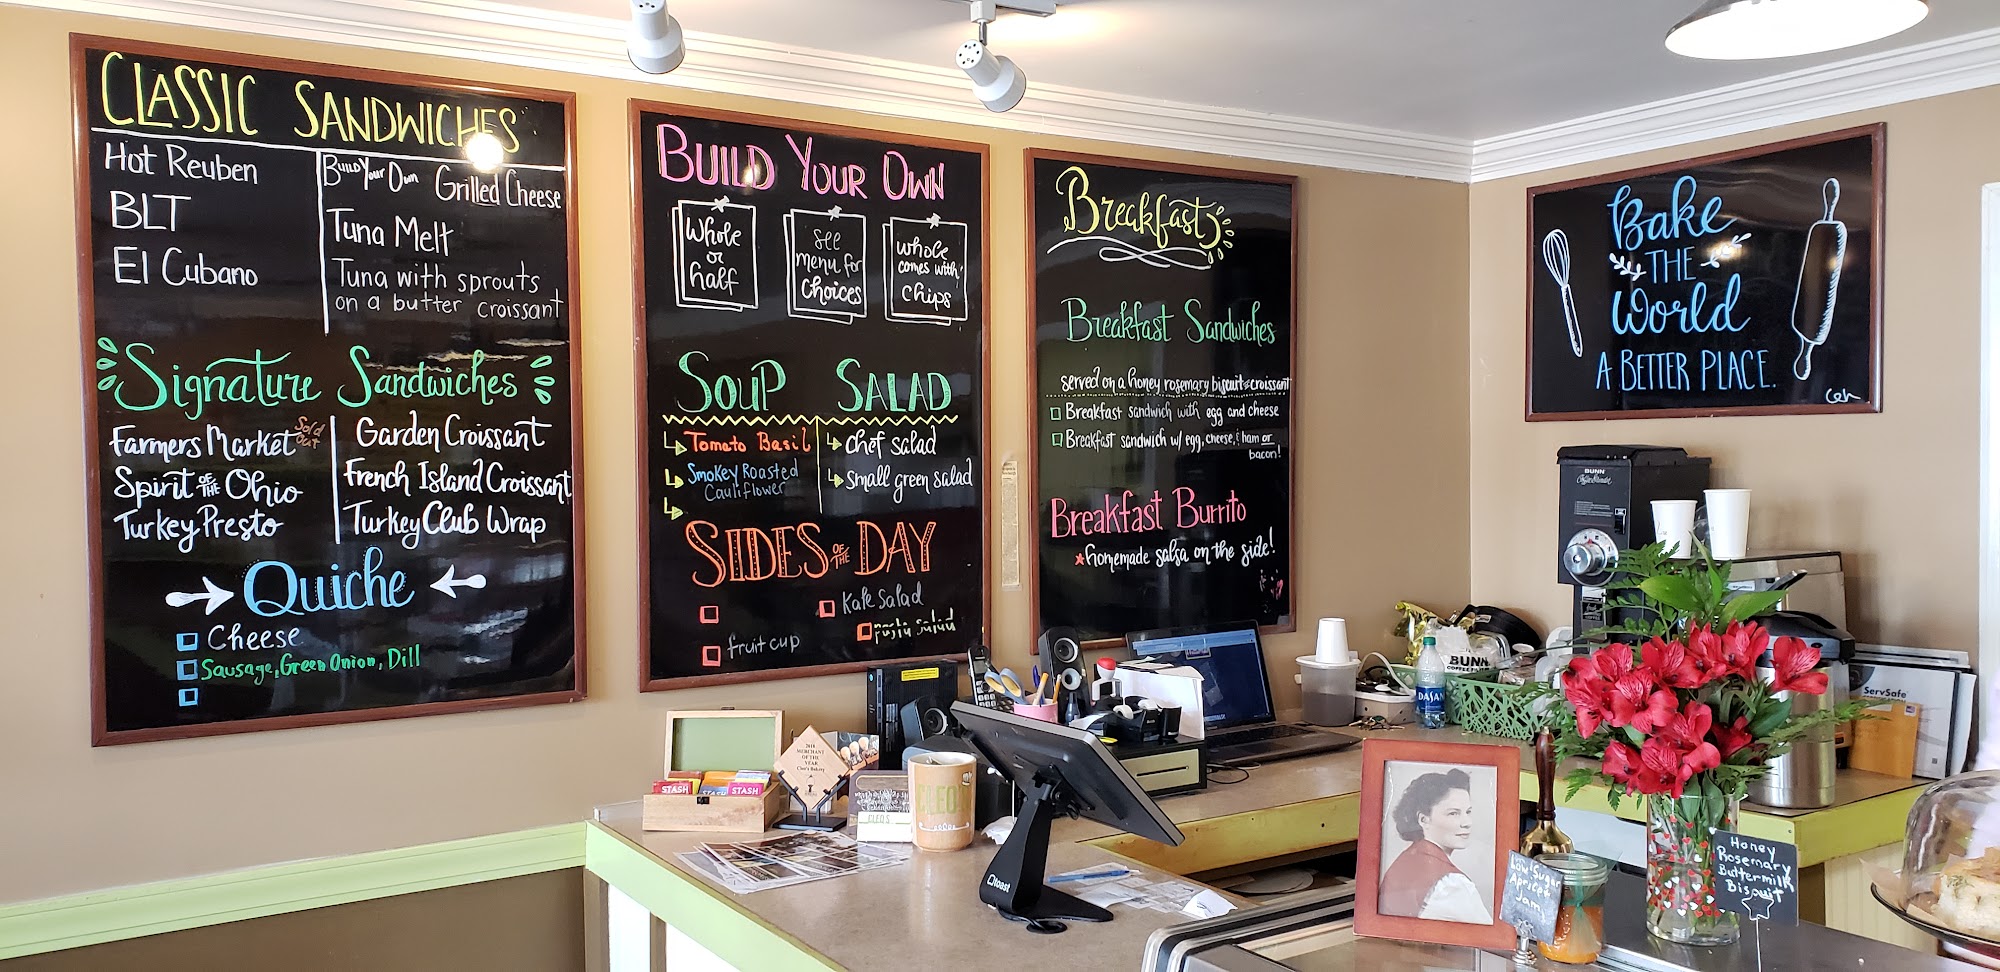 CLASSIC SANDWICHES
Hot Reuben
BLT
El Cubano
Build Your Own Grilled Cheese
Tuna Melt
Tuna with sprouts
on a butter croissant
Signature Sandwiches
Farmers Market Sold out
Spirit of the Ohio
Turkey Presto
Garden Croissant
French Island Croissant
Turkey Club Wrap
Quiche
Cheese
Sausage, Green Onion, Dill
BUILD YOUR OWN
Whole
or
half
see
menu for
choices
whole
comes with
chips
SOUP
Tomato Basil
Smokey Roasted
Cauliflower
SALAD
chef salad
small green salad
SIDES OF THE DAY
fruit cup
Kale Salad
pasta salad
Breakfast
Breakfast Sandwiches
served on a honey rosemary biscuit or croissant
Breakfast sandwich with egg and cheese
Breakfast sandwich w/ egg, cheese, & ham or
bacon!
Breakfast Burrito
*homemade salsa on the side!
Bake
THE
World
A BETTER PLACE.
ceh
BUNN
BUNN
DASANI
ServSafe
STASH
STASH
2018
MERCHANT
OF THE
YEAR
Cleo's Bakery
CLEO'S
CLEO'S
toast
Low Sugar
Apricot
Jam
Honey
Rosemary
Buttermilk
Biscuit